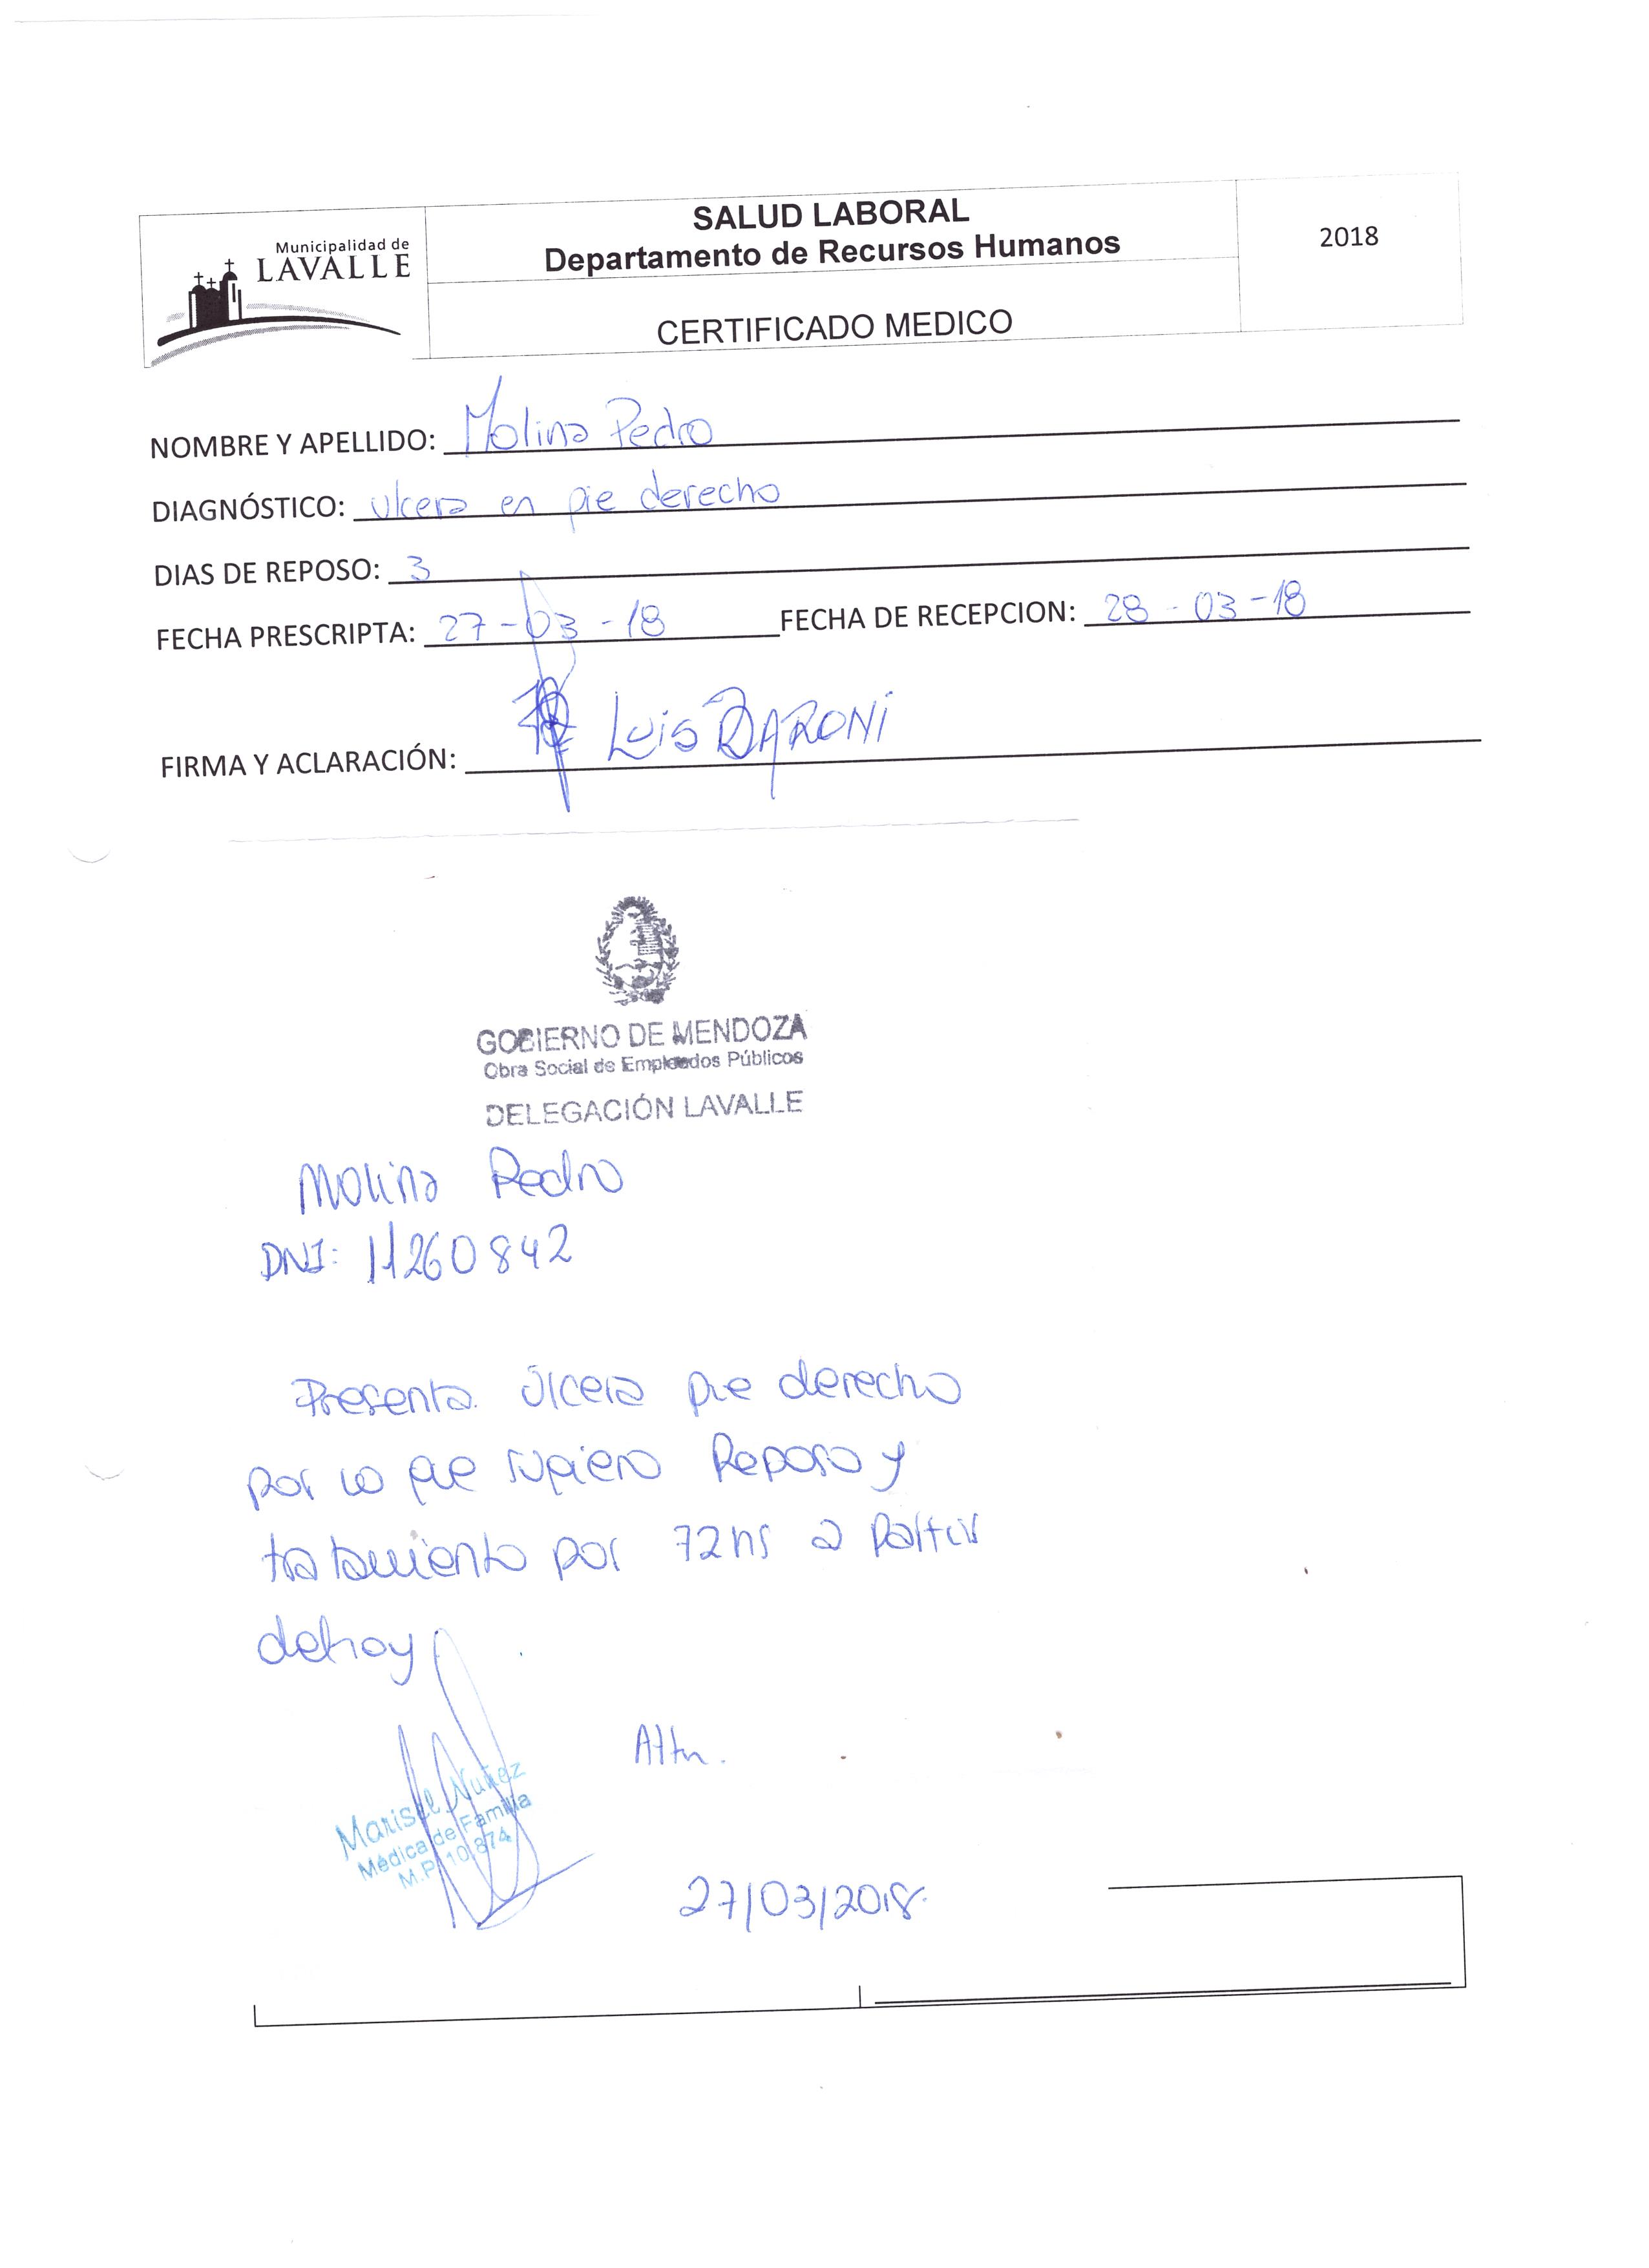 Municipalidad de
LAVALLE
SALUD LABORAL
Departamento de Recursos Humanos
2018
CERTIFICADO MEDICO
NOMBRE Y APELLIDO: Molina Pedro
DIAGNÓSTICO: ulcera en pie derecho
DIAS DE REPOSO: 3
FECHA PRESCRIPTA: 27-03-18 FECHA DE RECEPCION: 28-03-18
FIRMA Y ACLARACIÓN: Luis BARONI
GOBIERNO DE MENDOZA
Obra Social de Empleados Públicos
DELEGACIÓN LAVALLE
Molina Pedro
DNI: 11260842
Presenta úlcera pie derecho
por lo que sugiero Reposo y
tratamiento por 72hs a partir
de hoy
Marisel Nuñez
Médica de Familia
M.P. 10.874
27/03/2018.